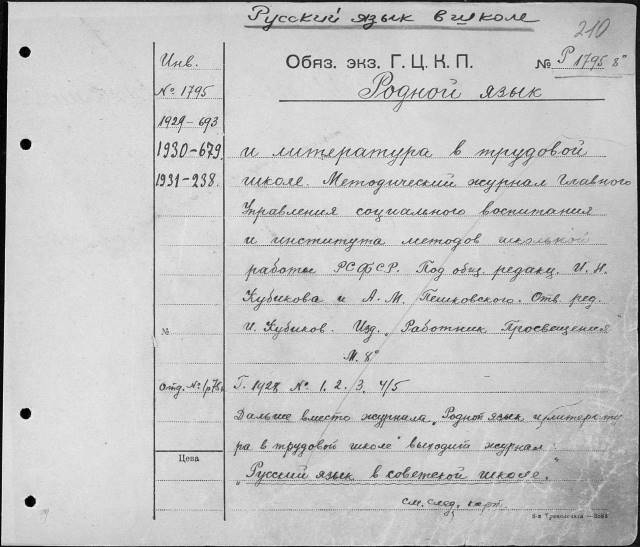 Русский язык в школе
210
Инв.
Обяз. экз. Г. Ц. К. П.
№ Р 1795 8°
№ 1795
Родной язык
1929-693
1930-679.
и литература в трудовой
1931-238.
школе. Методический журнал Главного
Управления социального воспитания
и института методов школьной
работы РСФСР. Под общ. редакц. И. Н.
Кубикова и А. М. Пешковского. Отв. ред.
№
И. Кубиков. Изд. „Работник Просвещения
М. 8°
Отд. №
Г. 1928 № 1. 2. 3. 4/5
Дальше вместо журнала „Родной язык и литерату
ра в трудовой школе" выходит журнал
Цена
„Русский язык в советской школе."
см. след. карт.